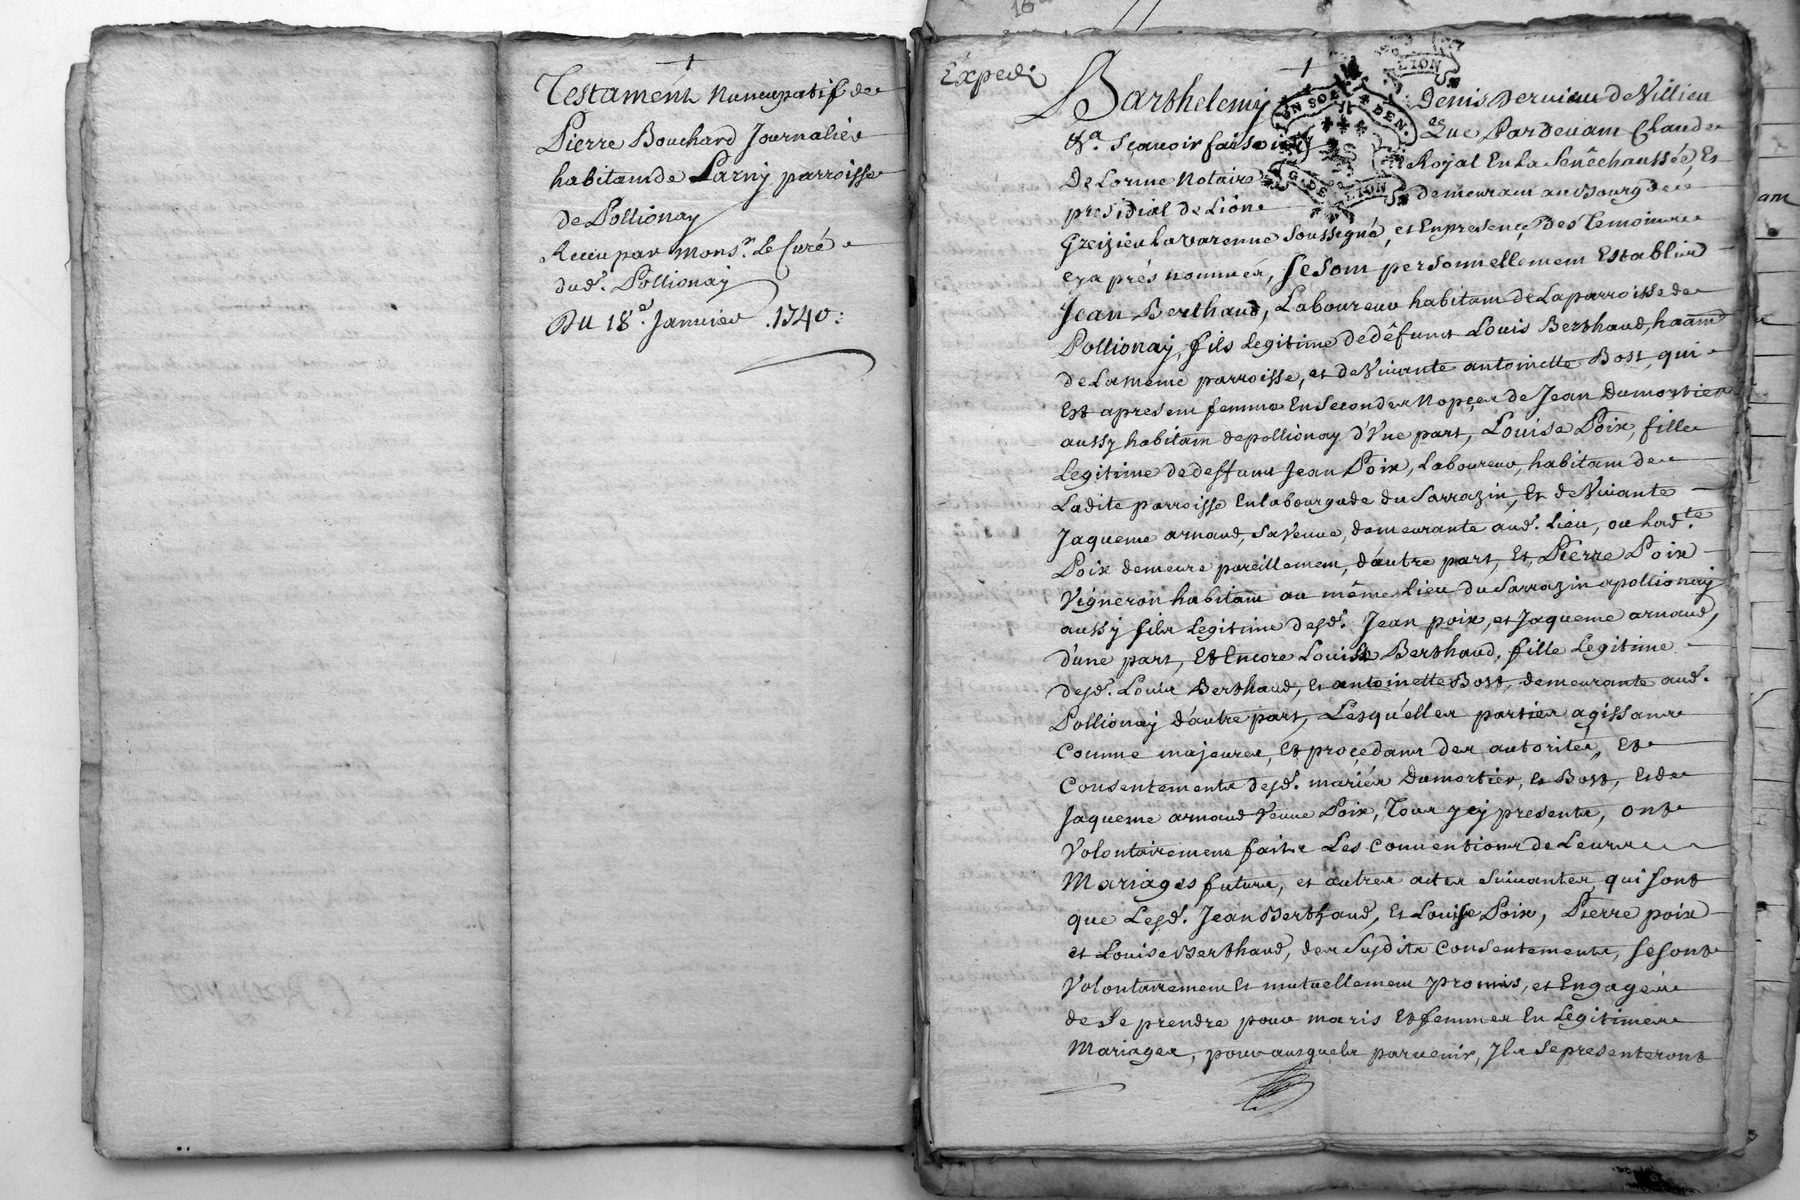 Testament Nuncupatif de
Pierre Bouchard Journalier
habitant de Larny parroisse
de Pollionay
Receu par Mons.r Le Curé
dud. Pollionay
Du 18.e Janvier .1740:
Expedié
LION
GN. DE LION
Barthelemy Denis Dervieu de Villieu
&.a Sçavoir faisons Que Pardevant Claude
De Lorme Notaire Royal En La Senêchaussée, Et
presidial de Lion demeurant au Bourg de
Greizieu Lavarenne Soussigné, et En presence Des Temoins
cy aprés nommés, se sont personnellement Establis
Jean Berthaud, Laboureur habitant de La parroisse de
Pollionay, fils Legitime de défunt Louis Berthaud, haânt
de La même parroisse, et de Vivante antoinette Bost, qui
Est apresent femme En secondes Nopçes de Jean Dumortier
aussy habitant de pollionay d'Vne part, Louise Poix, fille
Legitime de deffunt Jean Poix, Laboureur, habitant de
Ladite parroisse En la bourgade du Sarrazin, Et de Vivante
Jaqueme arnaud, sa Veuve, demeurante aud. Lieu, ou lad.te
Poix demeure pareillement, d'autre part, Et, Pierre Poix
Vigneron habitant au même Lieu du Sarrazin a pollionay
aussy fils Legitime desd. Jean poix, et Jaqueme arnaud,
d'une part, Et Encore Louise Berthaud, fille Legitime
desd. Louis Berthaud, Et antoinette Bost, demeurante aud.
Pollionay d'autre part, Lesquelles parties agissant
Comme majeures, Et proçedant des autorités, Et
Consentements desd. mariés Dumortier, Et Bost, Et de
Jaqueme arnaud Veuve Poix, Tous ycy presents, ont
Volontairement faits Les Conventions de Leurs
Mariages futurs, et autres actes suivantes, qui sont
que Lesd. Jean Berthaud, Et Louise Poix, Pierre poix
et Louise Berthaud, des Susdits Consentements, se sont
Volontairement Et mutuellement promis, et Engagés
de se prendre pour maris Et femmes En Legitimes
Mariages, pour ausquels parvenir, Ils se presenteront